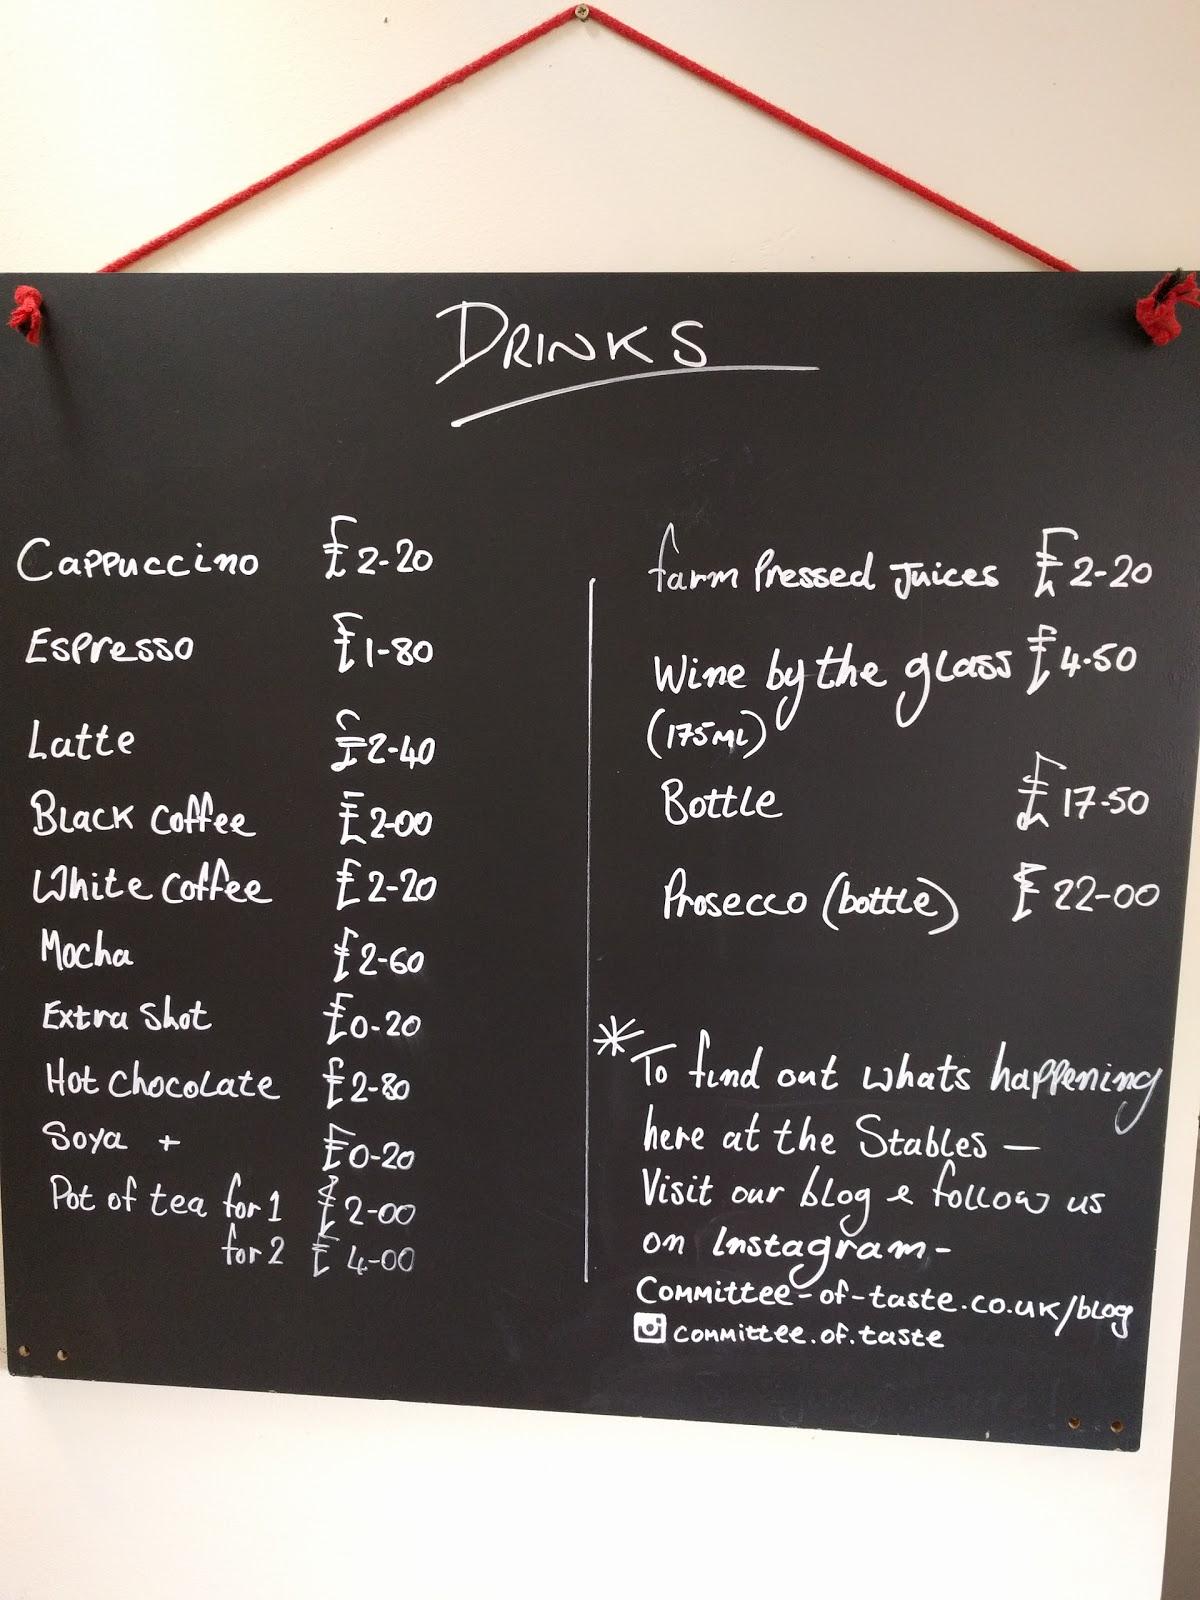 DRINKS
Cappuccino £2-20
Espresso £1-80
Latte £2-40
Black coffee £2-00
White coffee £2-20
Mocha £2-60
Extra Shot £0-20
Hot Chocolate £2-80
Soya + £0-20
Pot of tea for 1 £2-00
for 2 £4-00
farm Pressed Juices £2-20
Wine by the glass £4.50
(175ML)
Bottle £17.50
Prosecco (bottle) £22-00
* To find out whats happening
here at the Stables —
Visit our blog & follow us
on Instagram -
Committee-of-taste.co.uk/blog
committee.of.taste